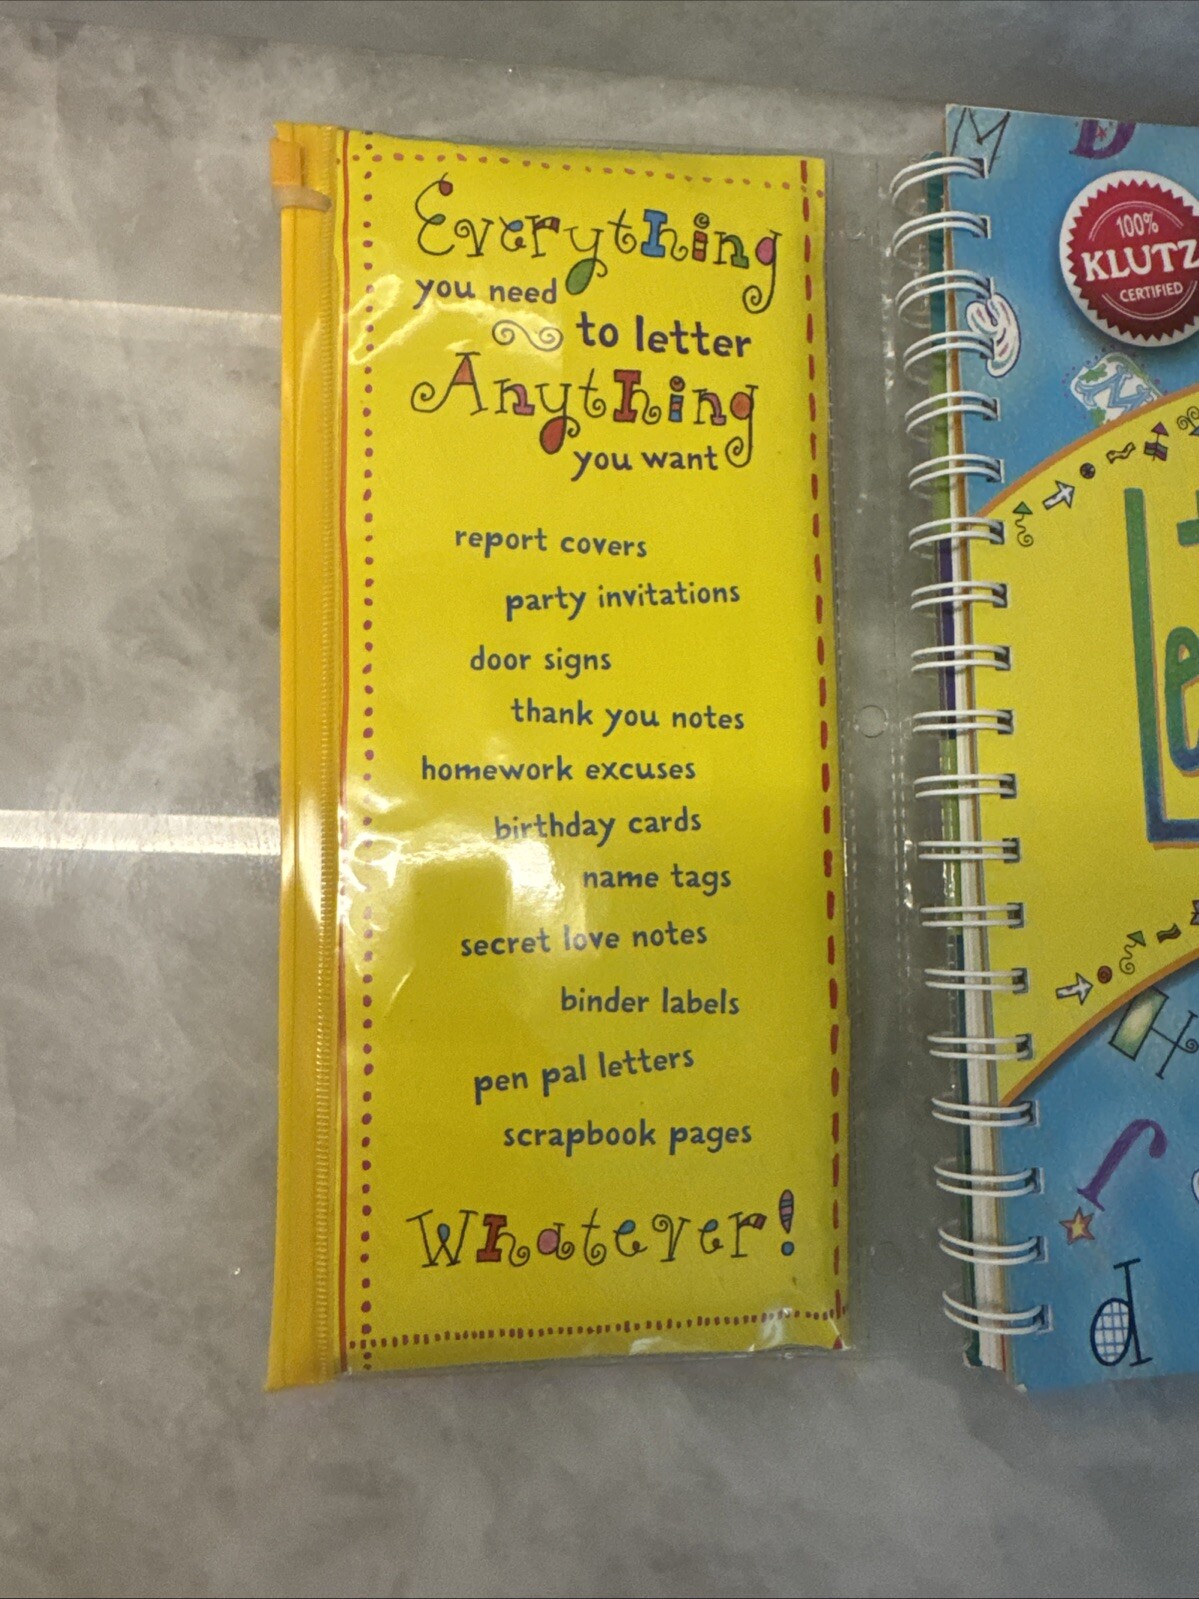 Everything
you need
to letter
Anything
you want
report covers
party invitations
door signs
thank you notes
homework excuses
birthday cards
name tags
secret love notes
binder labels
pen pal letters
scrapbook pages
Whatever!
100%
KLUTZ
CERTIFIED